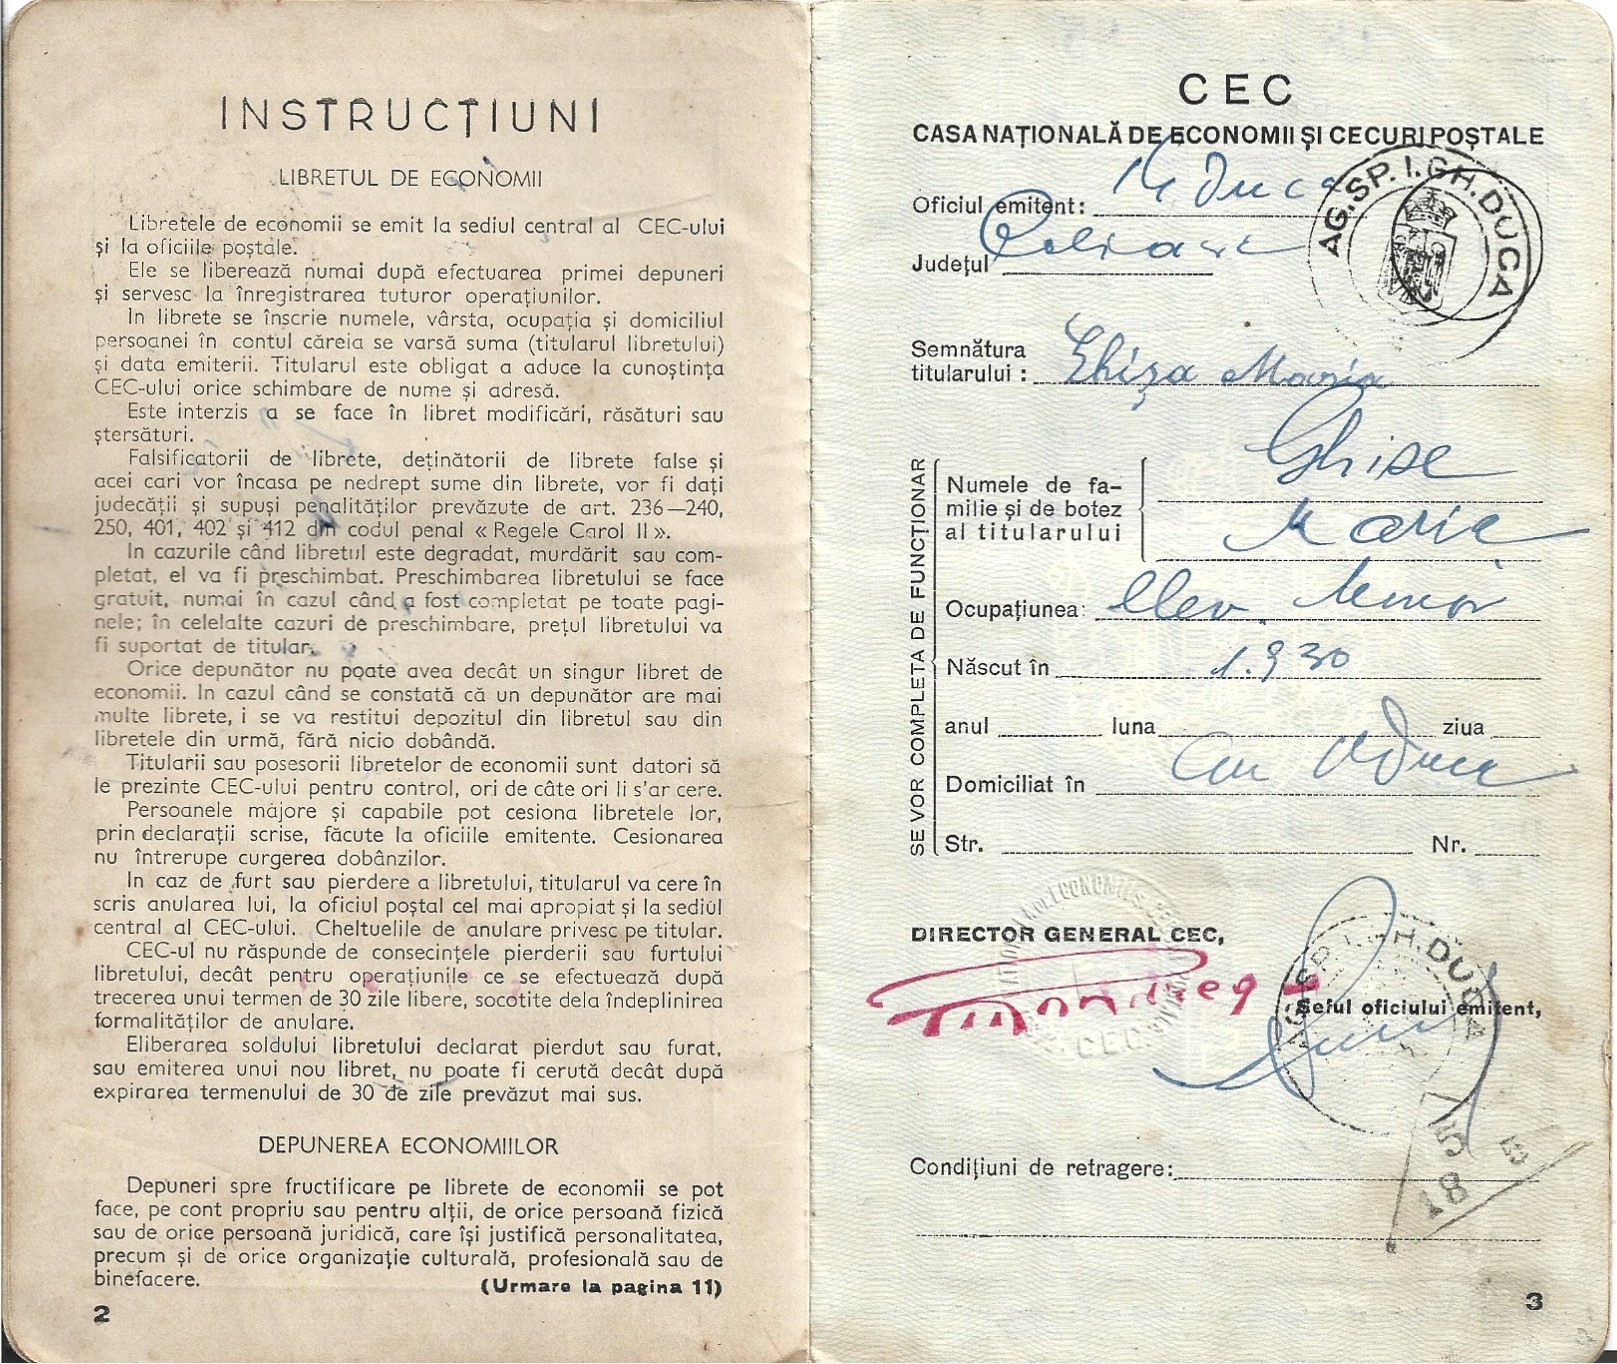 INSTRUCȚIUNI
LIBRETUL DE ECONOMII
Libretele de economii se emit la sediul central al CEC-ului
și la oficiile poștale.
Ele se liberează numai după efectuarea primei depuneri
și servesc la înregistrarea tuturor operațiunilor.
In librete se înscrie numele, vârsta, ocupația și domiciliul
persoanei în contul căreia se varsă suma (titularul libretului)
și data emiterii. Titularul este obligat a aduce la cunoștința
CEC-ului orice schimbare de nume și adresă.
Este interzis a se face în libret modificări, răsături sau
ștersături.
Falsificatorii de librete, deținătorii de librete false și
acei cari vor încasa pe nedrept sume din librete, vor fi dați
judecății și supuși penalităților prevăzute de art. 236—240,
250, 401, 402 și 412 din codul penal « Regele Carol II ».
In cazurile când libretul este degradat, murdărit sau com-
pletat, el va fi preschimbat. Preschimbarea libretului se face
gratuit, numai în cazul când a fost completat pe toate pagi-
nele; în celelalte cazuri de preschimbare, prețul libretului va
fi suportat de titular.
Orice depunător nu poate avea decât un singur libret de
economii. In cazul când se constată că un depunător are mai
multe librete, i se va restitui depozitul din libretul sau din
libretele din urmă, fără nicio dobândă.
Titularii sau posesorii libretelor de economii sunt datori să
le prezinte CEC-ului pentru control, ori de câte ori li s'ar cere.
Persoanele majore și capabile pot cesiona libretele lor,
prin declarații scrise, făcute la oficiile emitente. Cesionarea
nu întrerupe curgerea dobânzilor.
In caz de furt sau pierdere a libretului, titularul va cere în
scris anularea lui, la oficiul poștal cel mai apropiat și la sediul
central al CEC-ului. Cheltuelile de anulare privesc pe titular.
CEC-ul nu răspunde de consecințele pierderii sau furtului
libretului, decât pentru operațiunile ce se efectuează după
trecerea unui termen de 30 zile libere, socotite dela îndeplinirea
formalităților de anulare.
Eliberarea soldului libretului declarat pierdut sau furat,
sau emiterea unui nou libret, nu poate fi cerută decât după
expirarea termenului de 30 de zile prevăzut mai sus.
DEPUNEREA ECONOMIILOR
Depuneri spre fructificare pe librete de economii se pot
face, pe cont propriu sau pentru alții, de orice persoană fizică
sau de orice persoană juridică, care își justifică personalitatea,
precum și de orice organizație culturală, profesională sau de
binefacere.
(Urmare la pagina 11)
2
CEC
CASA NAȚIONALĂ DE ECONOMII ȘI CECURI POȘTALE
Oficiul emitent: Duca
AG.SP. I.GH.DUCA
Județul
Semnătura
titularului: Ghișa Maria
SE VOR COMPLETA DE FUNCȚIONAR
Numele de fa-
milie și de botez
al titularului
Ghise
Maria
Ocupațiunea: elev minor
Născut în 1.930
anul luna ziua
Domiciliat în Duca
Str. Nr.
DIRECTOR GENERAL CEC,
AG.SP. I.GH.DUCA
Șeful oficiului emitent,
Condițiuni de retragere:
18 5
3